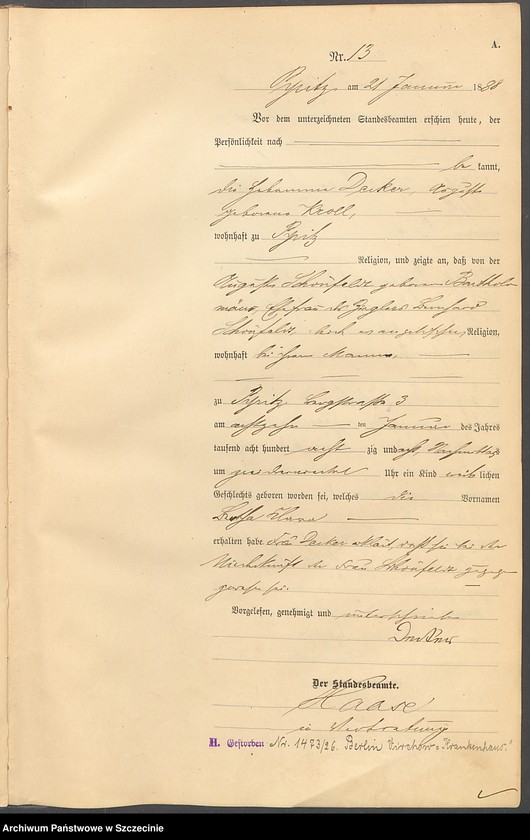 A.
Nr. 13
Pyritz, am 21 Januar 1888
Vor dem unterzeichneten Standesbeamten erschien heute, der
Persönlichkeit nach
be kannt,
die Hebamme Decker, Auguste
geborene Kroll,
wohnhaft zu Pyritz
Religion, und zeigte an, daß von der
Auguste Schönfeldt geborene Bartholo
mäus, Ehefrau des Bernhard
Schönfeldt, evangelischer Religion,
wohnhaft bei ihrem Manne,
zu Pyritz Bergstraße 3
am achtzehn ten Januar des Jahres
tausend acht hundert acht zig und acht, Vormittags
um Uhr ein Kind weib lichen
Geschlechts geboren worden sei, welches die Vornamen
Klara
erhalten habe. Frau Decker erklärt, daß sie bei der
Niederkunft der Frau Schönfeldt zugegen
gewesen sei.
Vorgelesen, genehmigt und unterschrieben
Decker
Der Standesbeamte.
Haase
in Vertretung
H. Gestorben Nr. 1473/26. Berlin Virchow-"Krankenhaus."
Archiwum Państwowe w Szczecinie